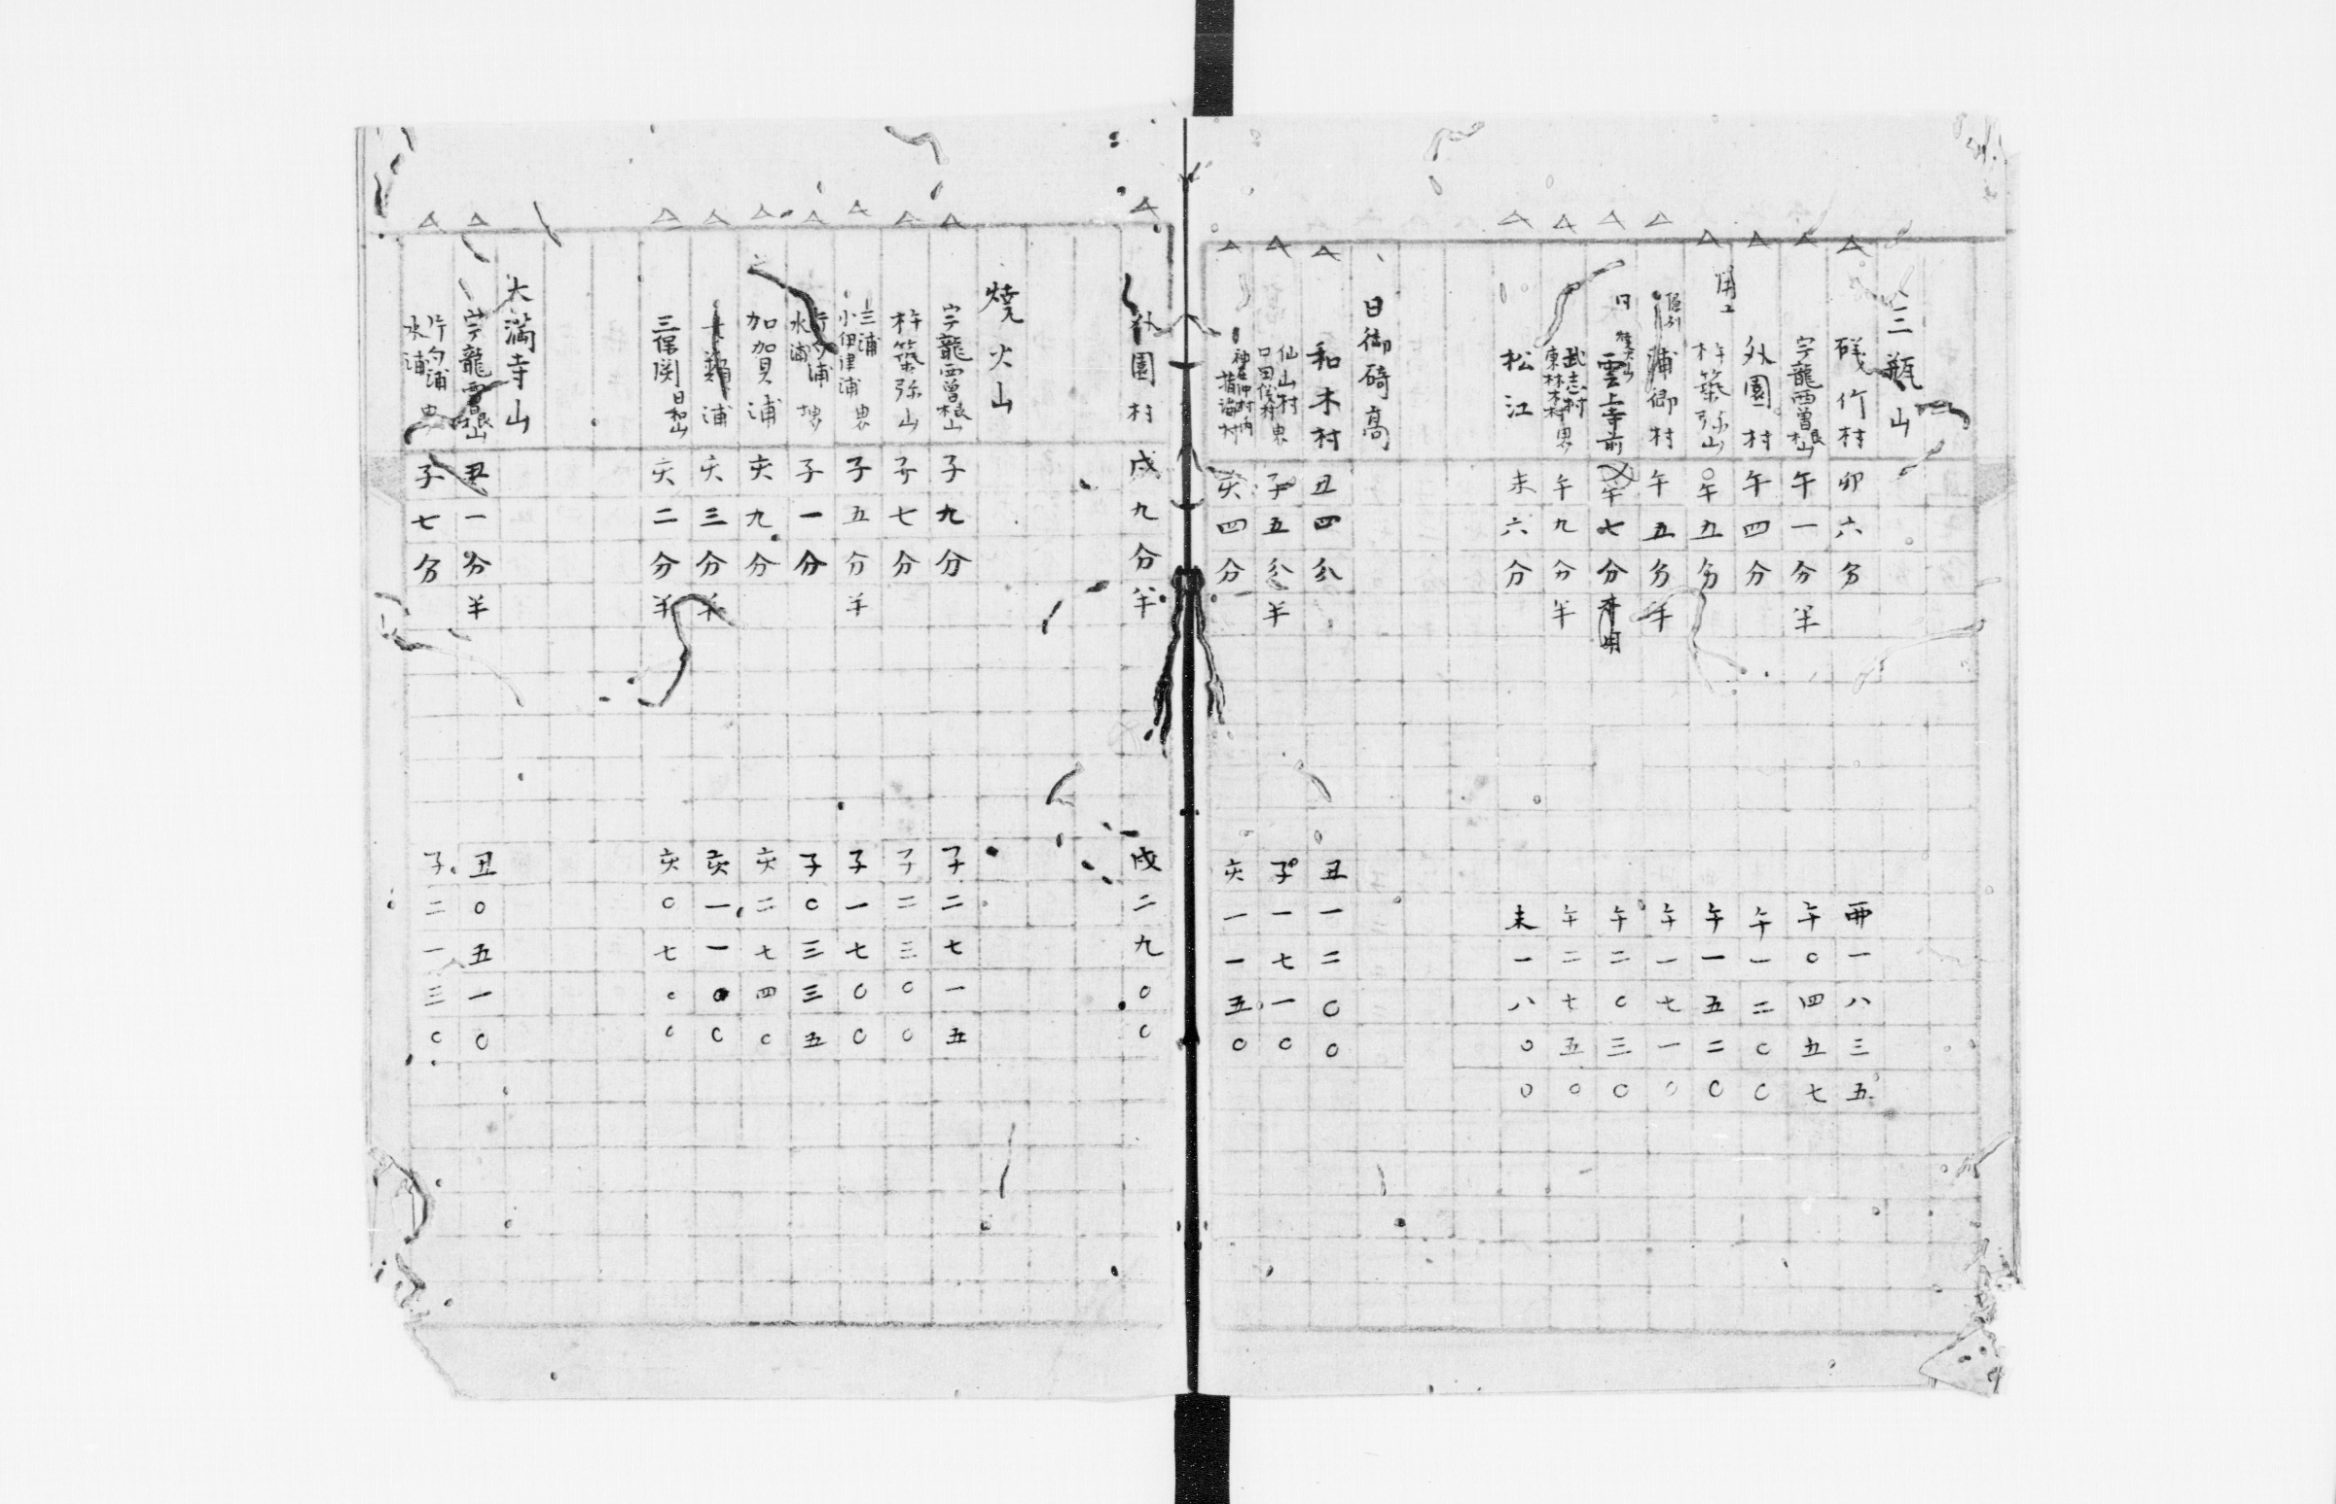 三瓶山
△磯竹村 卯六分 酉一八三五
△宇龍西曽根山 午一分半 午〇四五七
△外園村 午四分 午一二〇〇
△杵築弥山 〇午五分 午一五二〇
△浦郷村 午五分半 午一七一〇
△同 雲上寺前 午七分 午二〇三〇
△武志村
東林木村界 午九分半 午二七五〇
△松江 未六分 未一八〇〇
日御碕高
△和木村 丑四分 丑一二〇〇
△仙山村
口田儀村界 子五分半 子一七一〇
△ 亥四分 亥一一五〇
△外園村 戌九分半 戌二九〇〇
焼火山
△宇龍西曽根山 子九分 子二七一五
△杵築弥山 子七分 子二三〇〇
△三浦
小伊津浦 界 子五分半 子一七〇〇
△片句浦
水浦 界 子一分 子〇三三五
△加賀浦 亥九分 亥二七四〇
△七類浦 亥三分半 亥一一〇〇
△三保関 日和山 亥二分半 亥〇七〇〇
大満寺山
△宇龍西曽根山 丑一分半 丑〇五一〇
△片句浦
水浦 界 子七分 子二一三〇